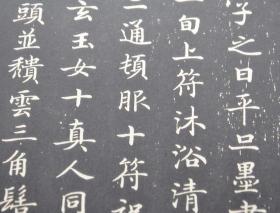 子之日平旦墨書
旬上符沐浴清
二通頓服十符祝
玄玉女十真人同
頭並穨雲三角髻